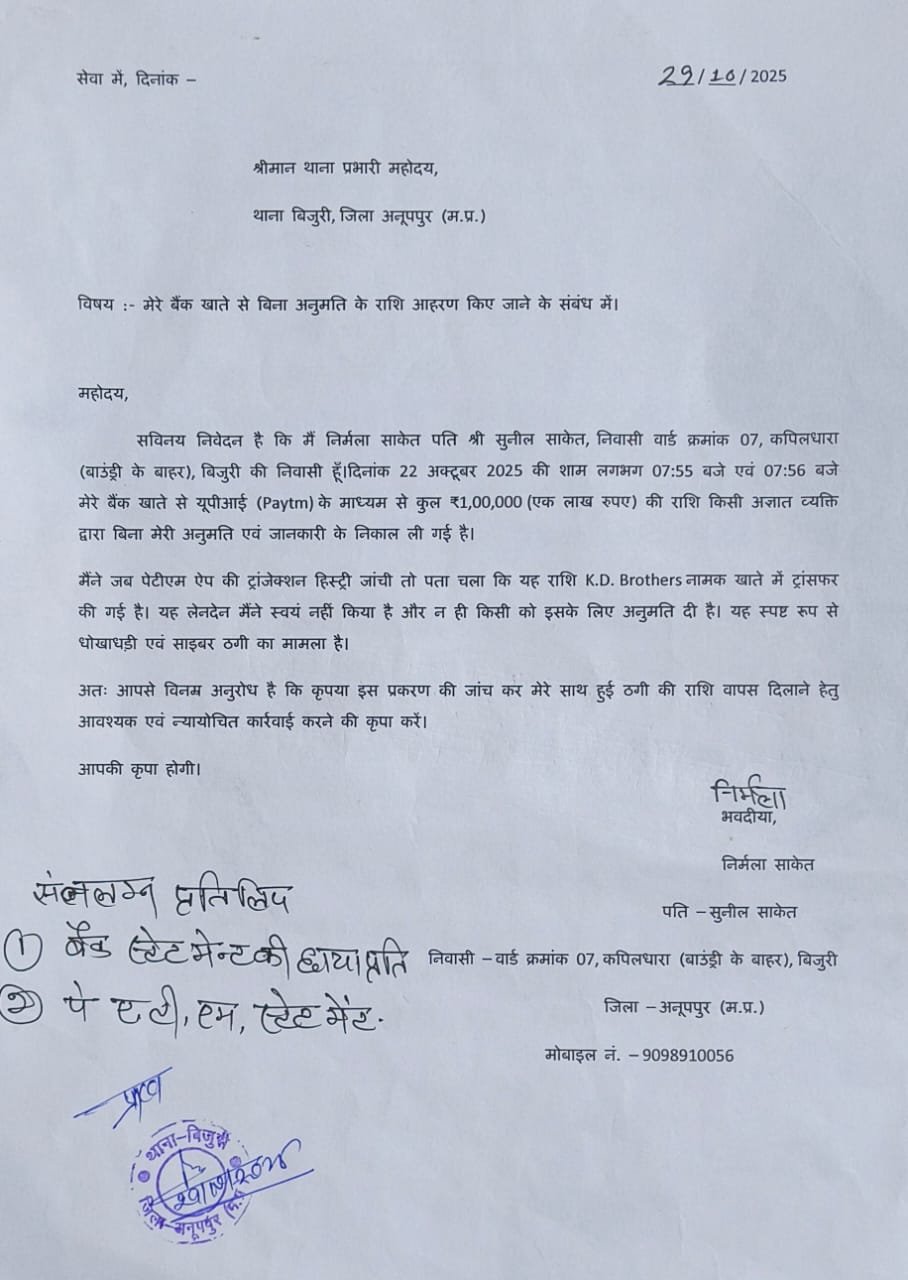 सेवा में, दिनांक – 29/10/2025
श्रीमान थाना प्रभारी महोदय,
थाना बिजुरी, जिला अनूपपुर (म.प्र.)
विषय :- मेरे बैंक खाते से बिना अनुमति के राशि आहरण किए जाने के संबंध में।
महोदय,
सविनय निवेदन है कि मैं निर्मला साकेत पति श्री सुनील साकेत, निवासी वार्ड क्रमांक 07, कपिलधारा
(बाउंड्री के बाहर), बिजुरी की निवासी हूँ।दिनांक 22 अक्टूबर 2025 की शाम लगभग 07:55 बजे एवं 07:56 बजे
मेरे बैंक खाते से यूपीआई (Paytm) के माध्यम से कुल ₹1,00,000 (एक लाख रुपए) की राशि किसी अज्ञात व्यक्ति
द्वारा बिना मेरी अनुमति एवं जानकारी के निकाल ली गई है।
मैंने जब पेटीएम ऐप की ट्रांजेक्शन हिस्ट्री जांची तो पता चला कि यह राशि K.D. Brothers नामक खाते में ट्रांसफर
की गई है। यह लेनदेन मैंने स्वयं नहीं किया है और न ही किसी को इसके लिए अनुमति दी है। यह स्पष्ट रूप से
धोखाधड़ी एवं साइबर ठगी का मामला है।
अतः आपसे विनम्र अनुरोध है कि कृपया इस प्रकरण की जांच कर मेरे साथ हुई ठगी की राशि वापस दिलाने हेतु
आवश्यक एवं न्यायोचित कार्रवाई करने की कृपा करें।
आपकी कृपा होगी।
निर्मला
भवदीया,
निर्मला साकेत
पति – सुनील साकेत
निवासी – वार्ड क्रमांक 07, कपिलधारा (बाउंड्री के बाहर), बिजुरी
जिला – अनूपपुर (म.प्र.)
मोबाइल नं. – 9098910056
प्रतिलिप
① बैंक स्टेटमेन्ट की छायाप्रति
② पे टी, एम, स्टेटमेंट.
थाना-बिजुरी
जिला-अनूपपुर